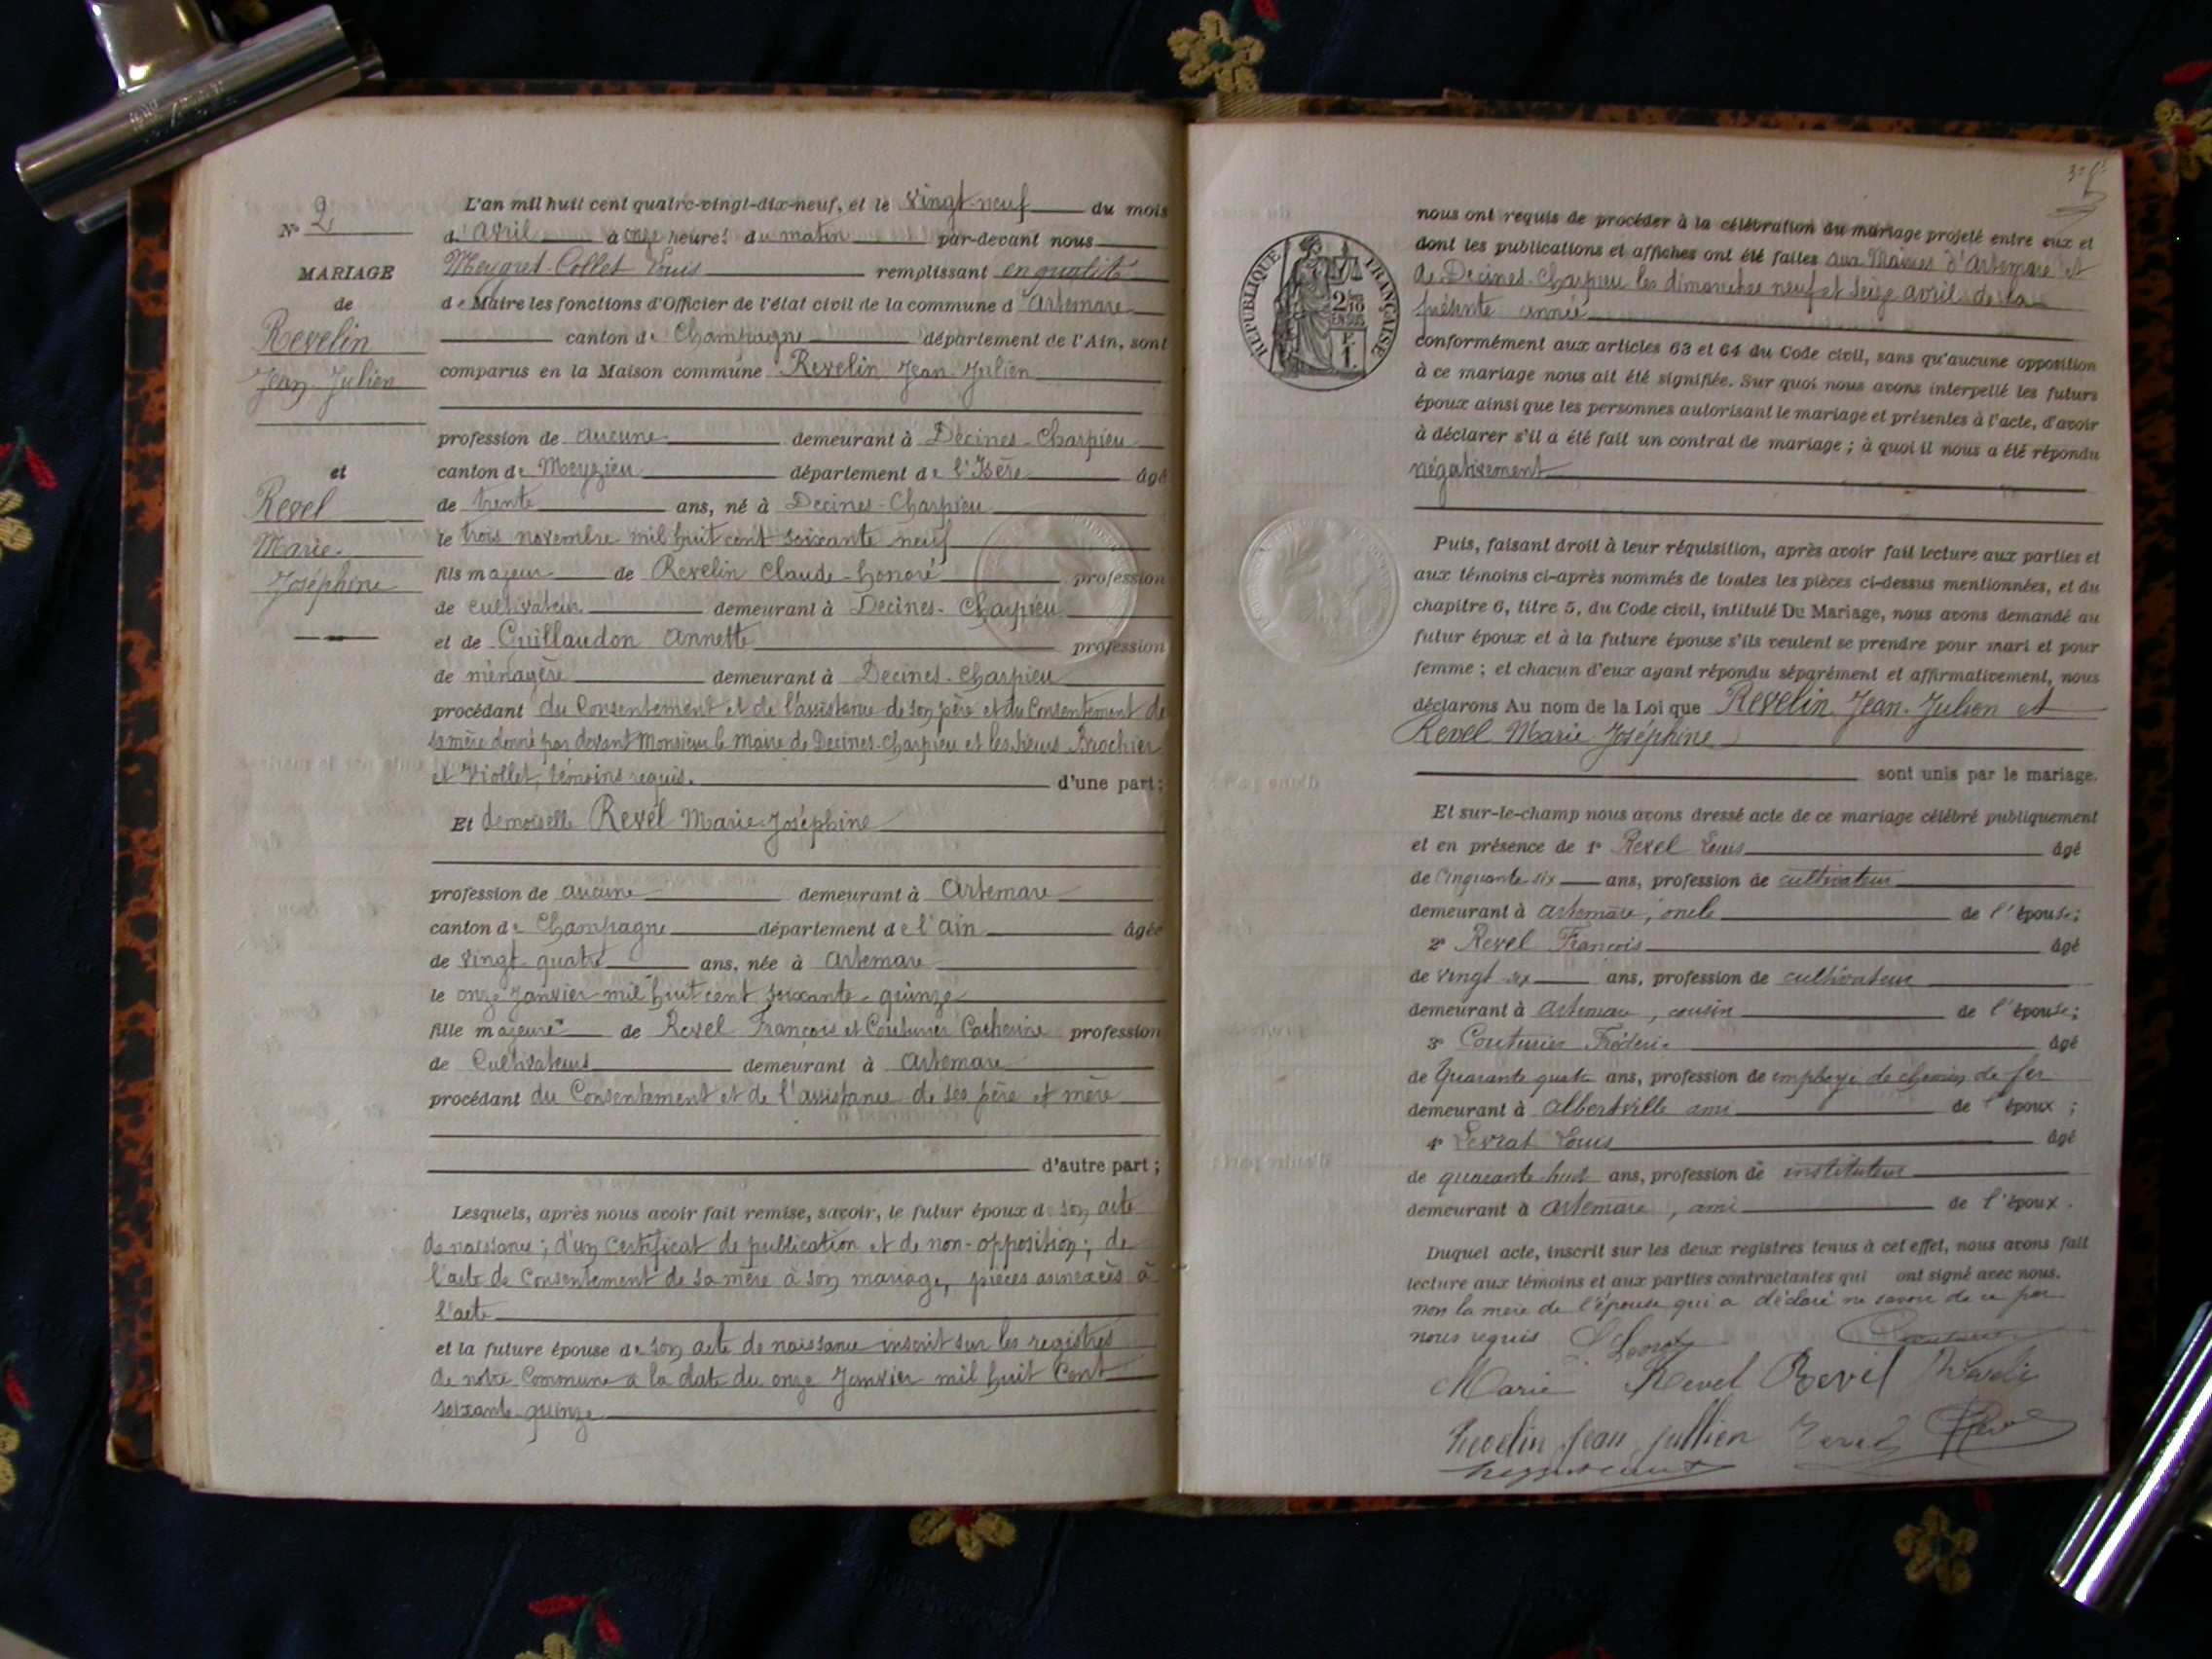 N° 2
MARIAGE
de
Revelin
Jean-Julien
et
Revel
Marie-
Joséphine
L'an mil huit cent quatre-vingt-dix-neuf, et le vingt-neuf du mois
d'Avril à onze heures du matin par-devant nous
Meygret-Collet Louis remplissant en qualité
de Maire les fonctions d'Officier de l'état civil de la commune d'Artemare
canton de Champagne département de l'Ain, sont
comparus en la Maison commune Revelin Jean Julien
profession de aucune demeurant à Décines-Charpieu
canton de Meyzieu département de l'Isère âgé
de trente ans, né à Décines-Charpieu
le trois novembre mil huit cent soixante neuf
fils majeur de Revelin Claude-honoré profession
de cultivateur demeurant à Décines-Charpieu
et de Guillaudon Annette profession
de ménagère demeurant à Décines-Charpieu
procédant du Consentement et de l'assistance de son père et du Consentement de
sa mère donné par devant Monsieur le Maire de Décines-Charpieu et les sieurs Brochier
et Viollet, témoins requis. d'une part;
Et demoiselle Revel Marie-Joséphine
profession de aucune demeurant à Artemare
canton de Champagne département de l'Ain âgée
de vingt-quatre ans, née à Artemare
le onze Janvier mil huit cent soixante-quinze
fille majeure de Revel François et Couturier Catherine profession
de Cultivateurs demeurant à Artemare
procédant du Consentement et de l'assistance de ses père et mère
d'autre part;
Lesquels, après nous avoir fait remise, savoir, le futur époux de son acte
de naissance; d'un certificat de publication et de non-opposition; de
l'acte de Consentement de sa mère à son mariage, pièces annexées à
l'acte
et la future épouse de son acte de naissance inscrit sur les registres
de notre Commune à la date du onze Janvier mil huit Cent
soixante-quinze
RÉPUBLIQUE FRANÇAISE
nous ont requis de procéder à la célébration du mariage projeté entre eux et
dont les publications et affiches ont été faites aux Mairies d'Artemare et
de Décines-Charpieu les dimanches neuf et seize avril de la
présente année
conformément aux articles 63 et 64 du Code civil, sans qu'aucune opposition
à ce mariage nous ait été signifiée. Sur quoi nous avons interpellé les futurs
époux ainsi que les personnes autorisant le mariage et présentes à l'acte, d'avoir
à déclarer s'il a été fait un contrat de mariage; à quoi il nous a été répondu
négativement
Puis, faisant droit à leur réquisition, après avoir fait lecture aux parties et
aux témoins ci-après nommés de toutes les pièces ci-dessus mentionnées, et du
chapitre 6, titre 5, du Code civil, intitulé Du Mariage, nous avons demandé au
futur époux et à la future épouse s'ils veulent se prendre pour mari et pour
femme; et chacun d'eux ayant répondu séparément et affirmativement, nous
déclarons Au nom de la Loi que Revelin Jean-Julien et
Revel Marie-Joséphine
sont unis par le mariage.
Et sur-le-champ nous avons dressé acte de ce mariage célébré publiquement
et en présence de 1° Revel Louis âgé
de Cinquante-six ans, profession de cultivateur
demeurant à Artemare, oncle de l'épouse;
2° Revel François âgé
de vingt six ans, profession de cultivateur
demeurant à Artemare, cousin de l'épouse;
3° Couturier Fréderic âgé
de Quarante quatre ans, profession de employé de chemin de fer
demeurant à Albertville ami de l'époux;
4° Levrat Louis âgé
de quarante-huit ans, profession de instituteur
demeurant à Artemare, ami de l'époux.
Duquel acte, inscrit sur les deux registres tenus à cet effet, nous avons fait
lecture aux témoins et aux parties contractantes qui ont signé avec nous.
non la mère de l'épouse qui a déclaré ne savoir de ce par
nous requis
Marie Revel Revel
Revelin Jean Jullien